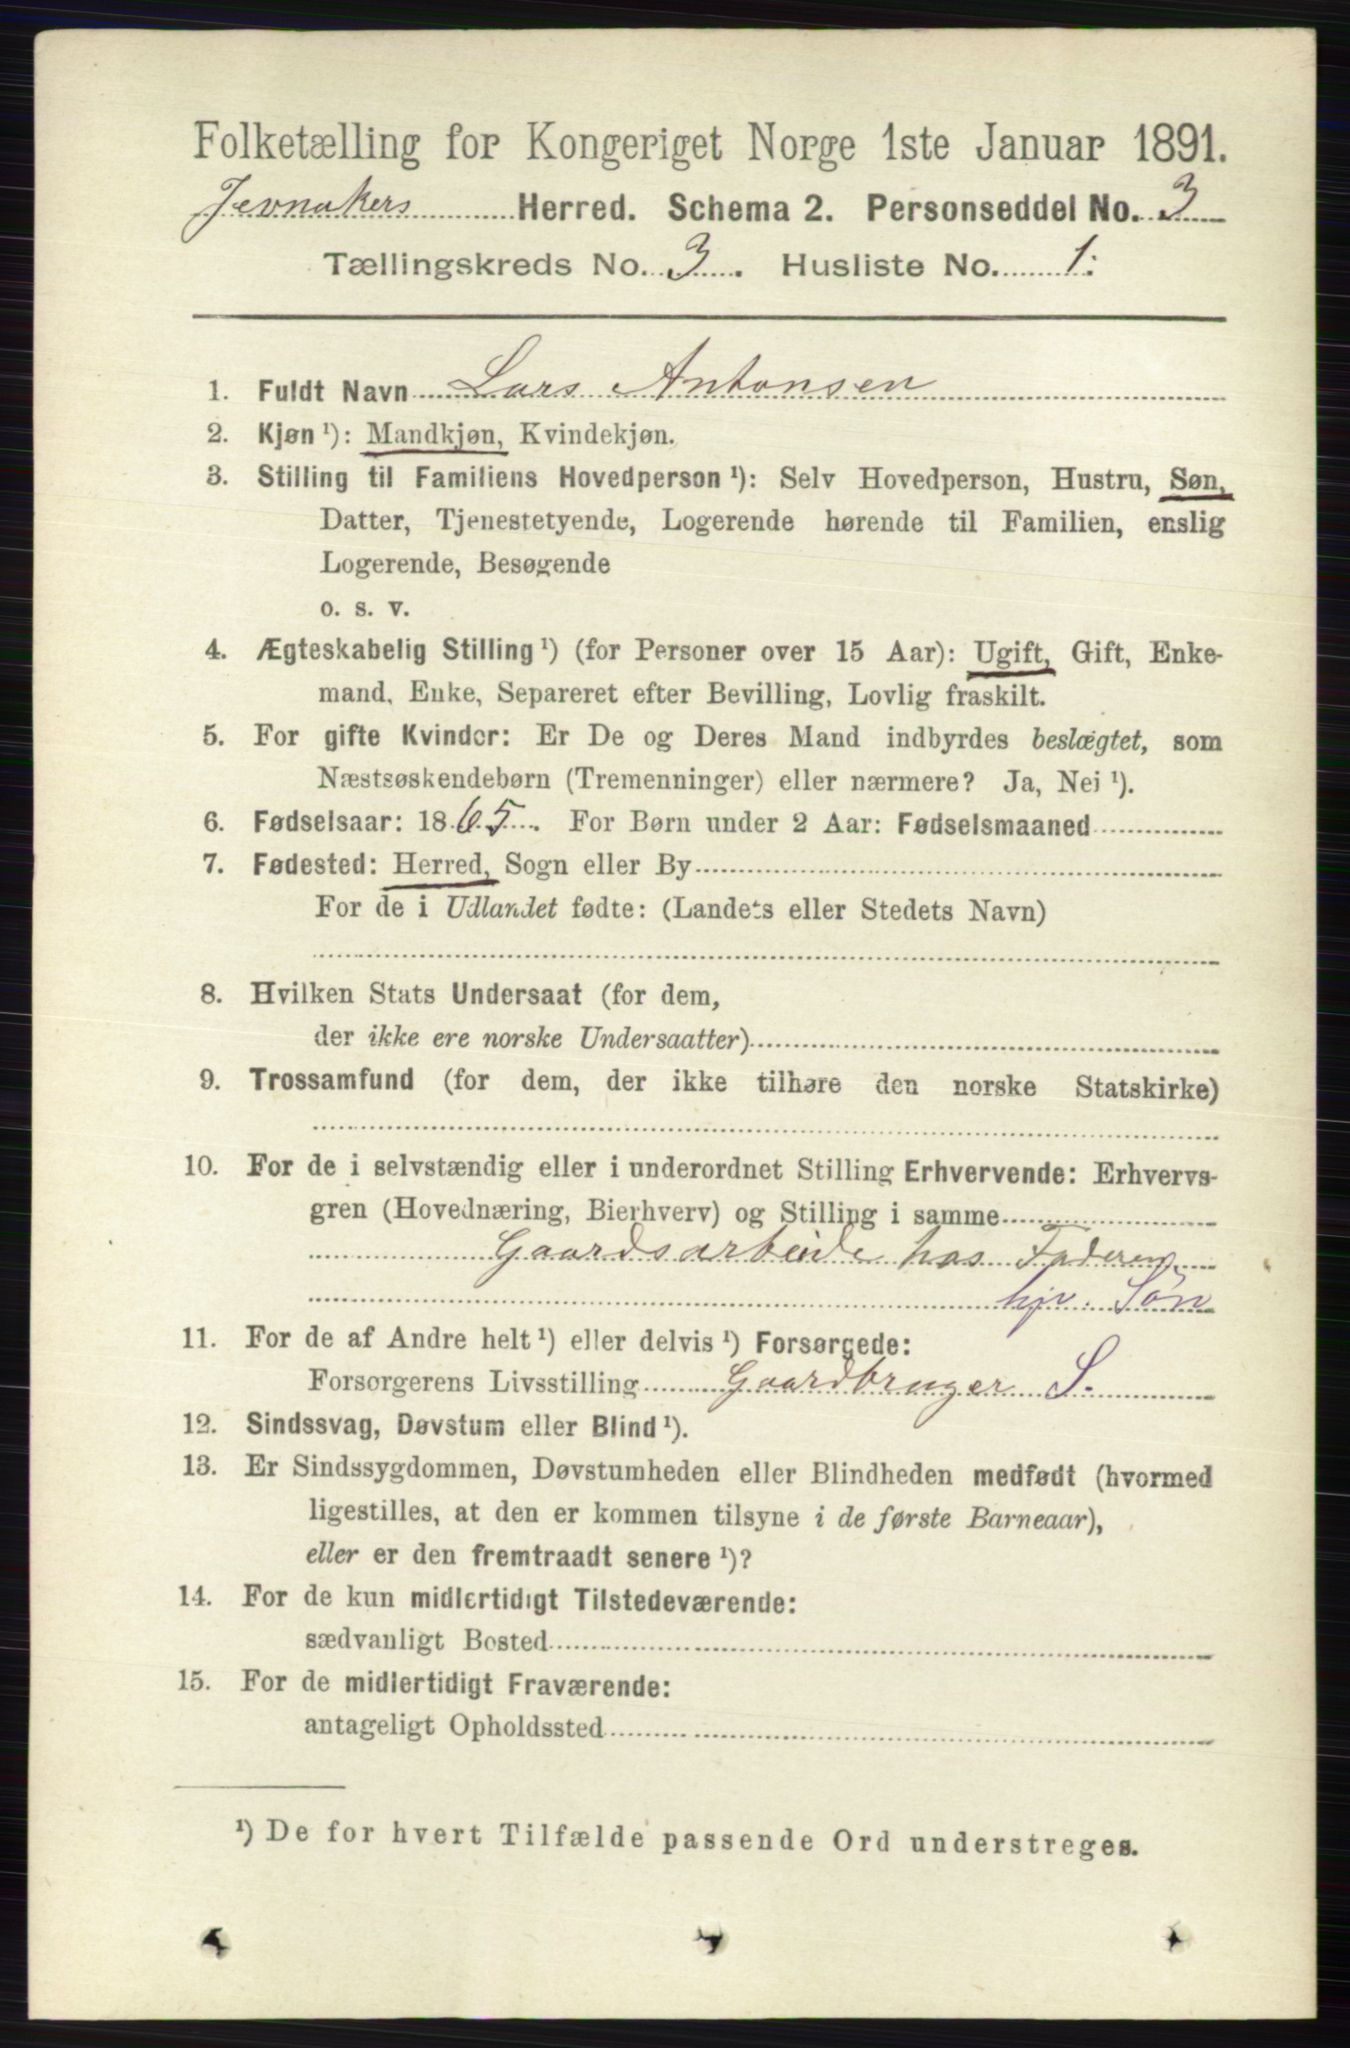 Folketælling for Kongeriget Norge 1ste Januar 1891.
Jevnakers Herred. Schema 2. Personseddel No. 3
Tællingskreds No. 3. Husliste No. 1.
1. Fuldt Navn Lars Antonsen
2. Kjøn ¹): Mandkjøn, Kvindekjøn.
3. Stilling til Familiens Hovedperson ¹): Selv Hovedperson, Hustru, Søn,
Datter, Tjenestetyende, Logerende hørende til Familien, enslig
Logerende, Besøgende
o. s. v.
4. Ægteskabelig Stilling ¹) (for Personer over 15 Aar): Ugift, Gift, Enke-
mand, Enke, Separeret efter Bevilling, Lovlig fraskilt.
5. For gifte Kvinder: Er De og Deres Mand indbyrdes beslægtet, som
Næstsøskendebørn (Tremenninger) eller nærmere? Ja, Nei ¹).
6. Fødselsaar: 1865. For Børn under 2 Aar: Fødselsmaaned
7. Fødested: Herred, Sogn eller By
For de i Udlandet fødte: (Landets eller Stedets Navn)
8. Hvilken Stats Undersaat (for dem,
der ikke ere norske Undersaatter)
9. Trossamfund (for dem, der ikke tilhøre den norske Statskirke)
10. For de i selvstændig eller i underordnet Stilling Erhvervende: Erhvervs-
gren (Hovednæring, Bierhverv) og Stilling i samme
Gaardsarbeide hos Faderen
hjv. Søn
11. For de af Andre helt ¹) eller delvis ¹) Forsørgede:
Forsørgerens Livsstilling Gaardbruger S.
12. Sindssvag, Døvstum eller Blind ¹).
13. Er Sindssygdommen, Døvstumheden eller Blindheden medfødt (hvormed
ligestilles, at den er kommen tilsyne i de første Barneaar),
eller er den fremtraadt senere ¹)?
14. For de kun midlertidigt Tilstedeværende:
sædvanligt Bosted
15. For de midlertidigt Fraværende:
antageligt Opholdssted
¹) De for hvert Tilfælde passende Ord understreges.